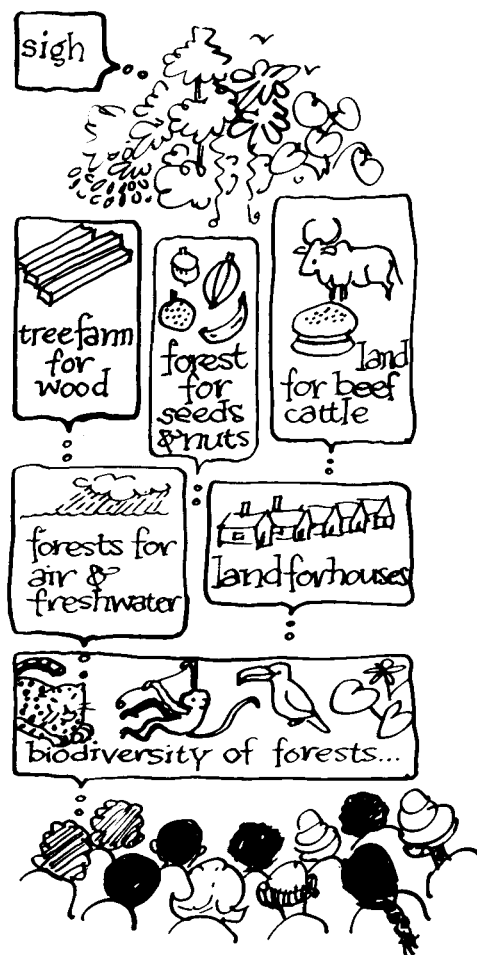 sigh
treefarm
for
wood
forest
for
seeds
& nuts
land
for beef
cattle
forests for
air &
freshwater
land for houses
biodiversity of forests...